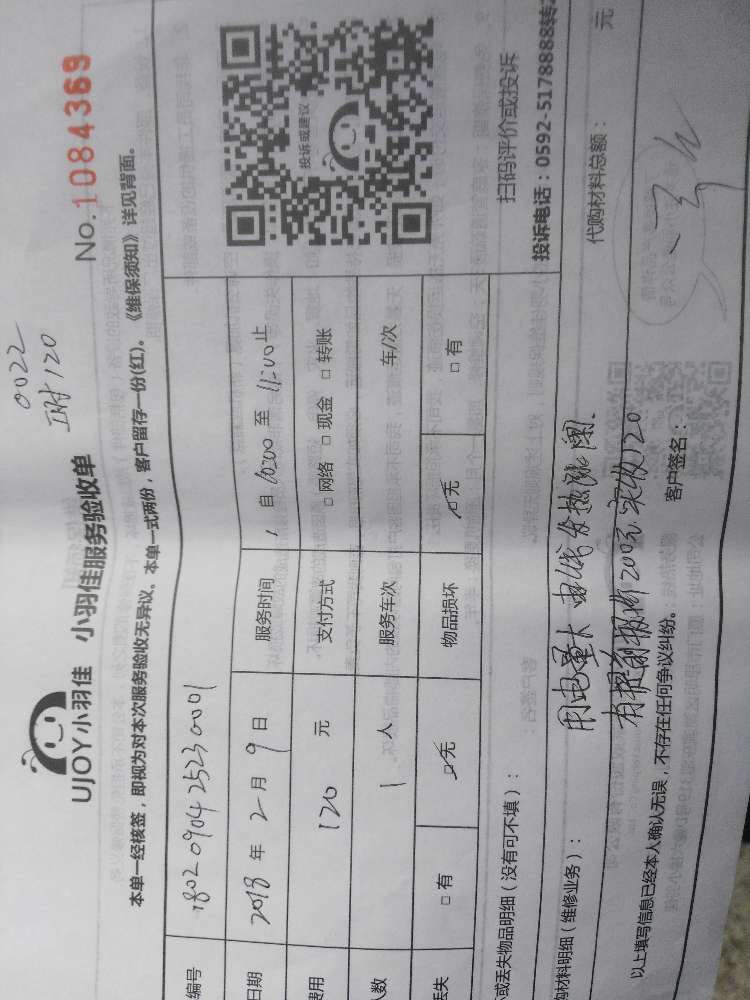 0022
No.1084369
UJOY小羽佳 小羽佳服务验收单
本单一经核签,即视为对本次服务验收无异议。本单一式两份,客户留存一份(红)。《维保须知》详见背面。
编号 1802090425230001
日期 2018 年 2 月 9 日 服务时间 自 至 11:00 止
费用 120 元 支付方式 □网络 □现金 □转账
人数 1 人 服务车次 车/次
丢失 □有 □无 物品损坏 □无 □有
投诉或建议
扫码评价或投诉
投诉电话:0592-5178888转
或丢失物品明细(没有可不填):
购材料明细(维修业务): 用电量大 电线发热 代购材料总额: 元
有提前报价200元 实收120
以上填写信息已经本人确认无误,不存在任何争议纠纷。 客户签名: